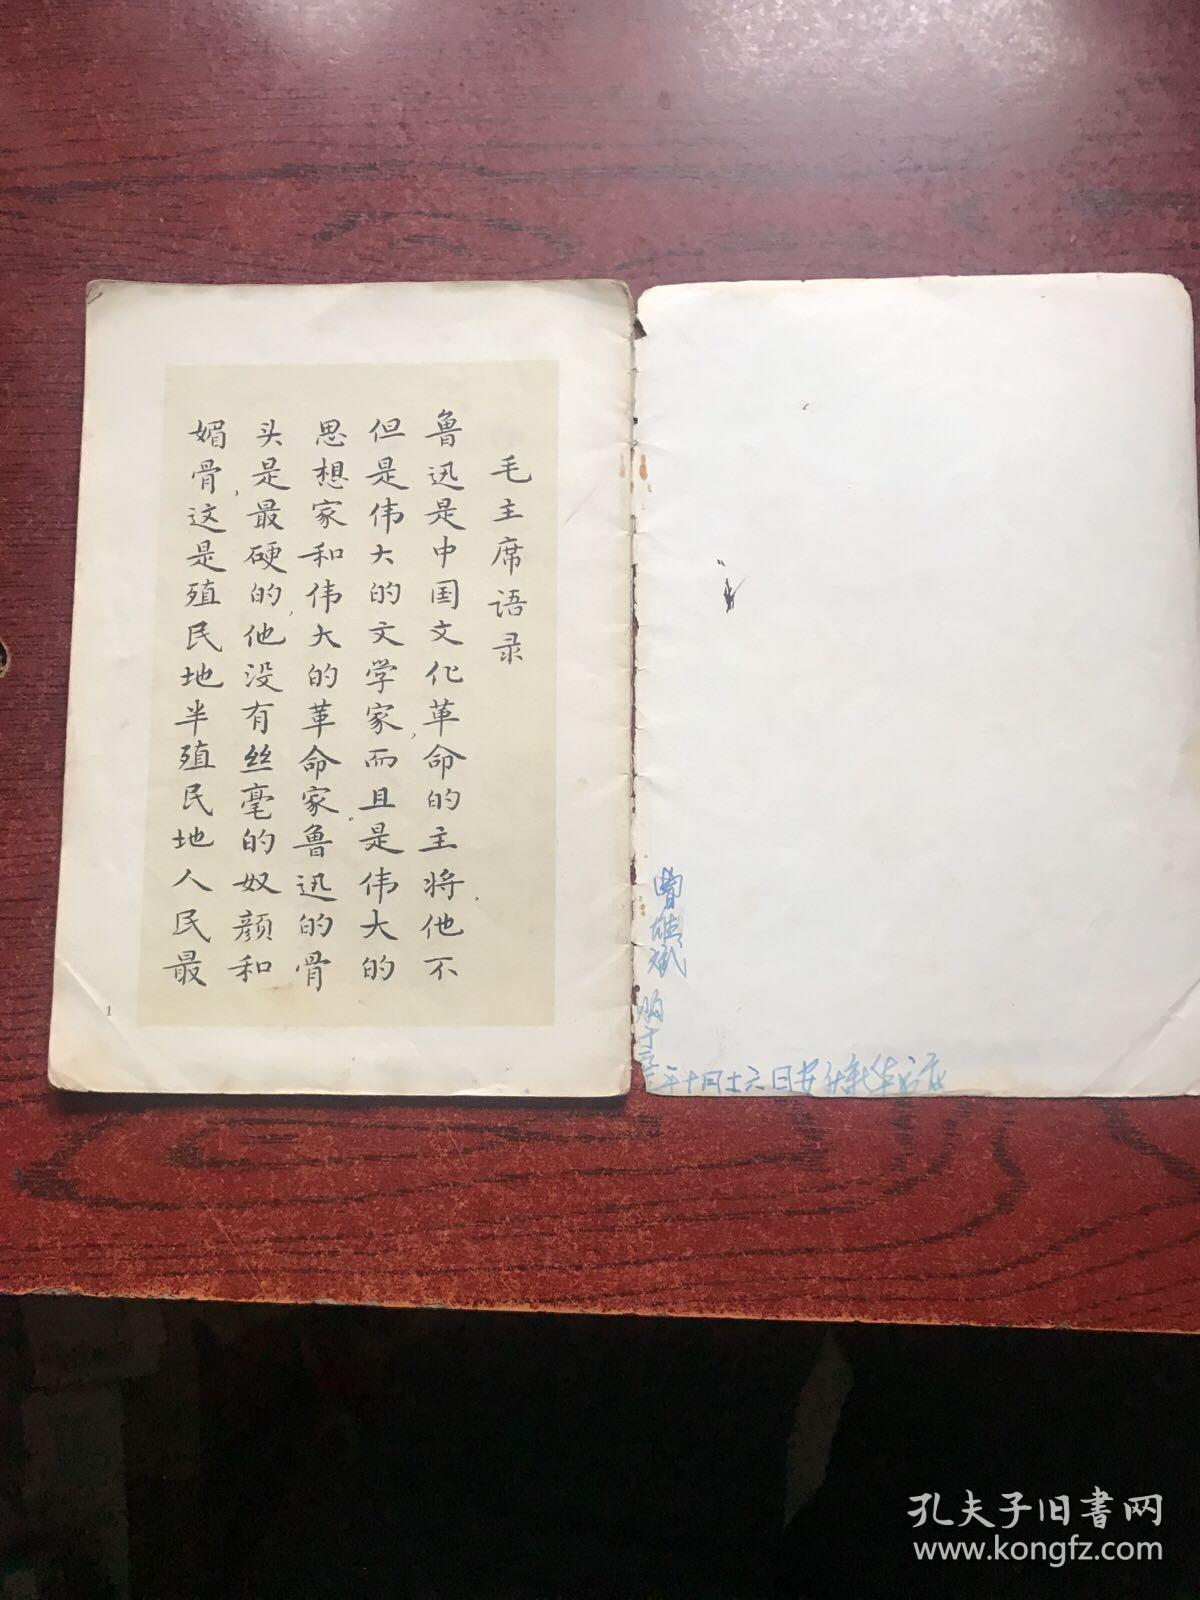 毛主席语录
鲁迅是中国文化革命的主将，他不
但是伟大的文学家，而且是伟大的
思想家和伟大的革命家。鲁迅的骨
头是最硬的，他没有丝毫的奴颜和
媚骨，这是殖民地半殖民地人民最
1
曹雄斌
购于
年十月十六日
孔夫子旧书网
www.kongfz.com